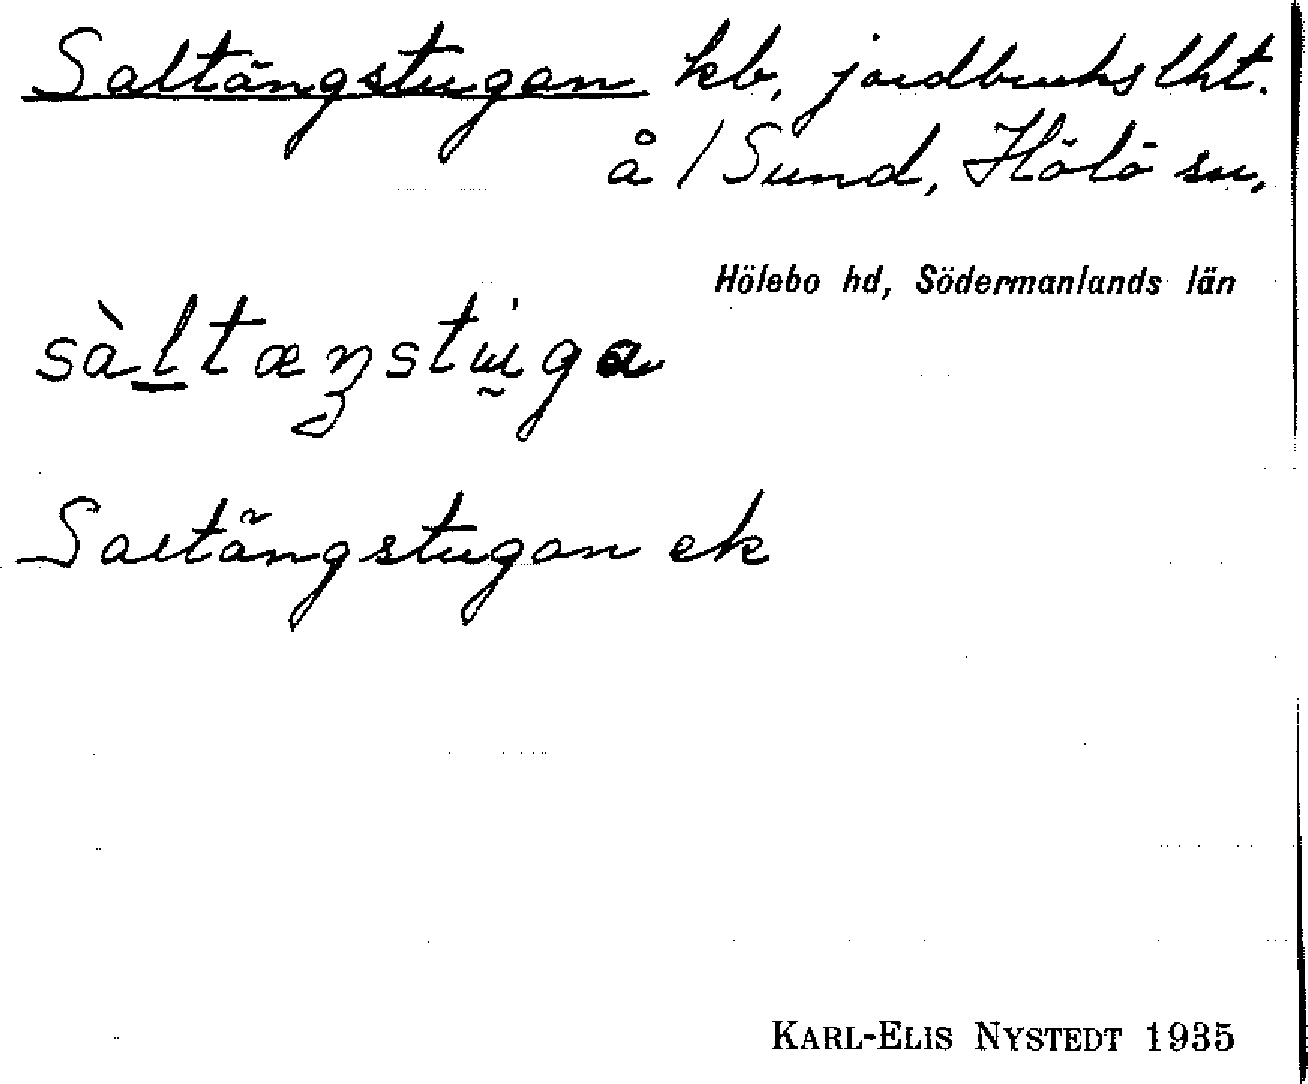 Saltängstugan kb, jordbrukslht.
å /Sund, Hölö sn,
Hölebo hd, Södermanlands län
sàltæŋstu̇ga
Saltängstugan ek
KARL-ELIS NYSTEDT 1935